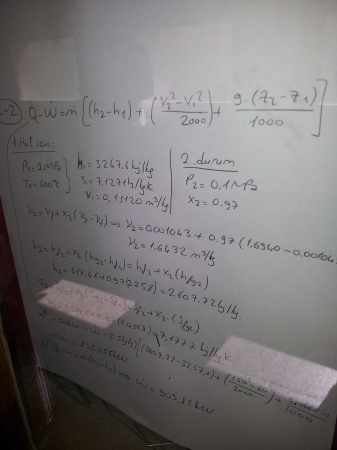 1-2) Q-Ẇ=m[(h2-h1)+(V2²-V1²/2000)+g.(Z2-Z1)/1000]
1.Hal için:
P1=2MPa
T1=400°C
h1=3247,6 kj/kg
s1=7,1271 kj/kgK
V1=0,15120 m³/kg
2.durum
P2=0.1MPa
x2=0.97
V2=Vf+x2(Vg-Vf)⇒V2=0.001043+0.97(1.6940-0.001043
V2=1.6432 m³/kg
h2=hf2+x2(hg2-hf2)=hf2+x2(hfg2)
h2=417.46+0.97(2258)=2607.72 kj/kg.
f2+x2.(Sfg2)
=7.1777 kj/kgK
1000
m(h2-h1)⇒Ẇ=505,82kW